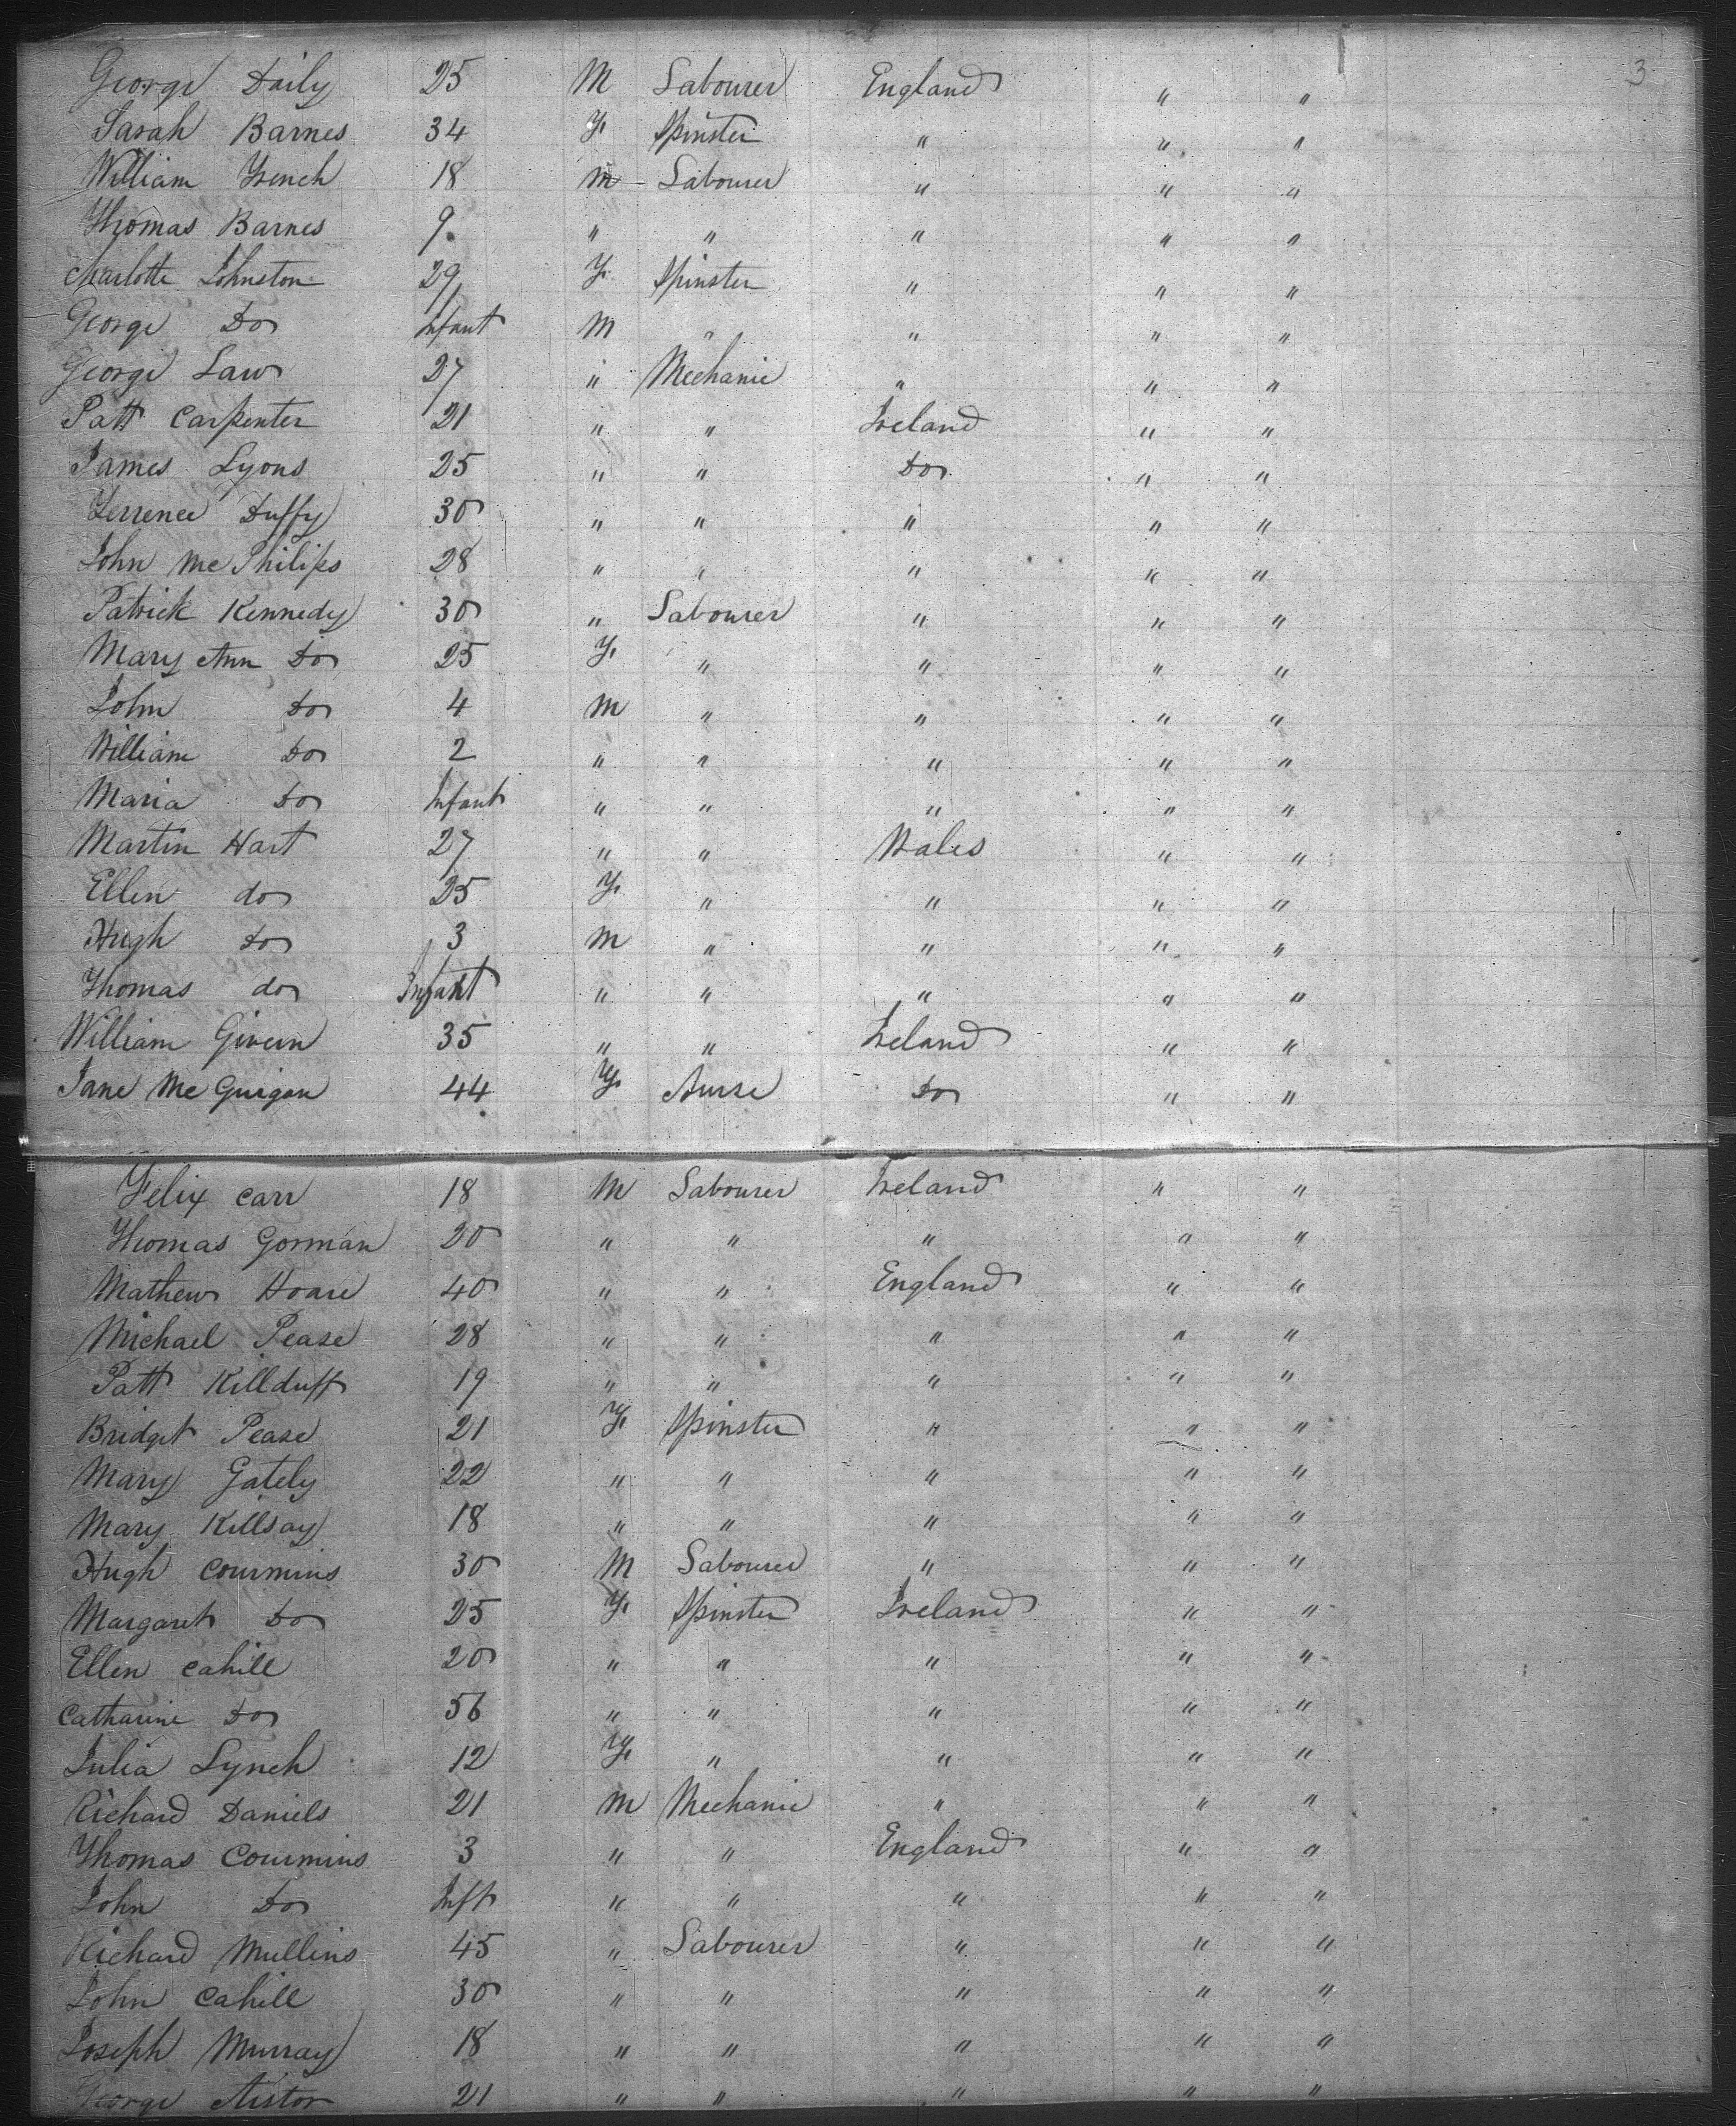 3
George Daily 25 M Labourer England " "
Sarah Barnes 34 F. Spinster " " "
William French 18 M - Labourer " " "
Thomas Barnes 9. " " " " "
Charlotte Johnston 29 F. Spinster " " "
George Do Infant M " " " "
George Law 27 " Mechanic " " "
Patt Carpenter 21 " " Ireland " "
James Lyons 25 " " Do " "
Terrence Duffy 30 " " " " "
John McPhilips 28 " " " " "
Patrick Kennedy 30 " Labourer " " "
Mary Ann Do 25 F. " " " "
John Do 4 M " " " "
William Do 2 " " " " "
Maria Do Infant " " " " "
Martin Hart 27 " " Wales " "
Ellen do 25 F. " " " "
Hugh Do 3 M " " " "
Thomas do Infant " " " " "
William Givern 35 " " Ireland " "
Jane McGuigan 44 F. Nurse Do " "
Felix Carr 18 M Labourer Ireland " "
Thomas Gorman 20 " " " " "
Mathew Hoare 40 " " England " "
Michael Pease 28 " " " " "
Patt Killduff 19 " " " " "
Bridget Pease 21 F. Spinster " " "
Mary Gately 22 " " " " "
Mary Killsay 18 " " " " "
Hugh Courmins 30 M Labourer " " "
Margaret Do 25 F. Spinster Ireland " "
Ellen Cahill 20 " " " " "
Catharine Do 56 " " " " "
Julia Lynch 12 F. " " " "
Richard Daniels 21 M Mechanic " " "
Thomas Courmins 3 " " England " "
John Do Inft " " " " "
Richard Mullins 45 " Labourer " " "
John Cahill 30 " " " " "
Joseph Murray 18 " " " " "
George Aistor 21 " " " " "